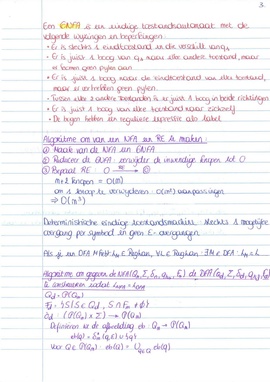 3.
Een GNFA is een eindige toestandsautomaat met de
volgende wijzigingen en beperkingen:
• Er is slechts 1 eindtoestand en die verschilt van qs
• Er is juist 1 boog van qs naar elke andere toestand, maar
er komen geen pijlen aan.
• Er is juist 1 boog naar de eindtoestand van elke toestand,
maar er vertrekken geen pijlen.
• Tussen elke 2 andere toestanden is er juist 1 boog in beide richtingen
• Er is juist 1 boog van elke toestand naar zichzelf
• De bogen hebben een reguliere expressie als label
Algoritme om van een NFA een RE te maken:
① Maak van de NFA een GNFA
② Reduceer de GNFA: verwijder de inwendige knopen tot 0
③ Bepaal RE: O RE→ ◎
m+2 knopen = O(m)
om 1 knoop te verwijderen: O(m²) aanpassingen
⇒ O(m³)
Deterministische eindige toestandsmachine: slechts 1 mogelijke
overgang per symbool en geen ε-overgangen.
Algoritme om gegeven de NFA (Qn, Σ, δn, qs, Fn) de DFA (Qd, Σ, δd, qd, Fd)
te construeren zodat
Qd = P(Qn)
Fd = {S | S ∈ Qd, S ∩ Fn ≠ ∅}
δd: (P(Qn) × Σ) → P(Qn)
Definieren we de afbeelding eb: Qn → P(Qn)
Voor Q ∈ P(Qn): eb(Q) = ∪q∈Q eb(q)